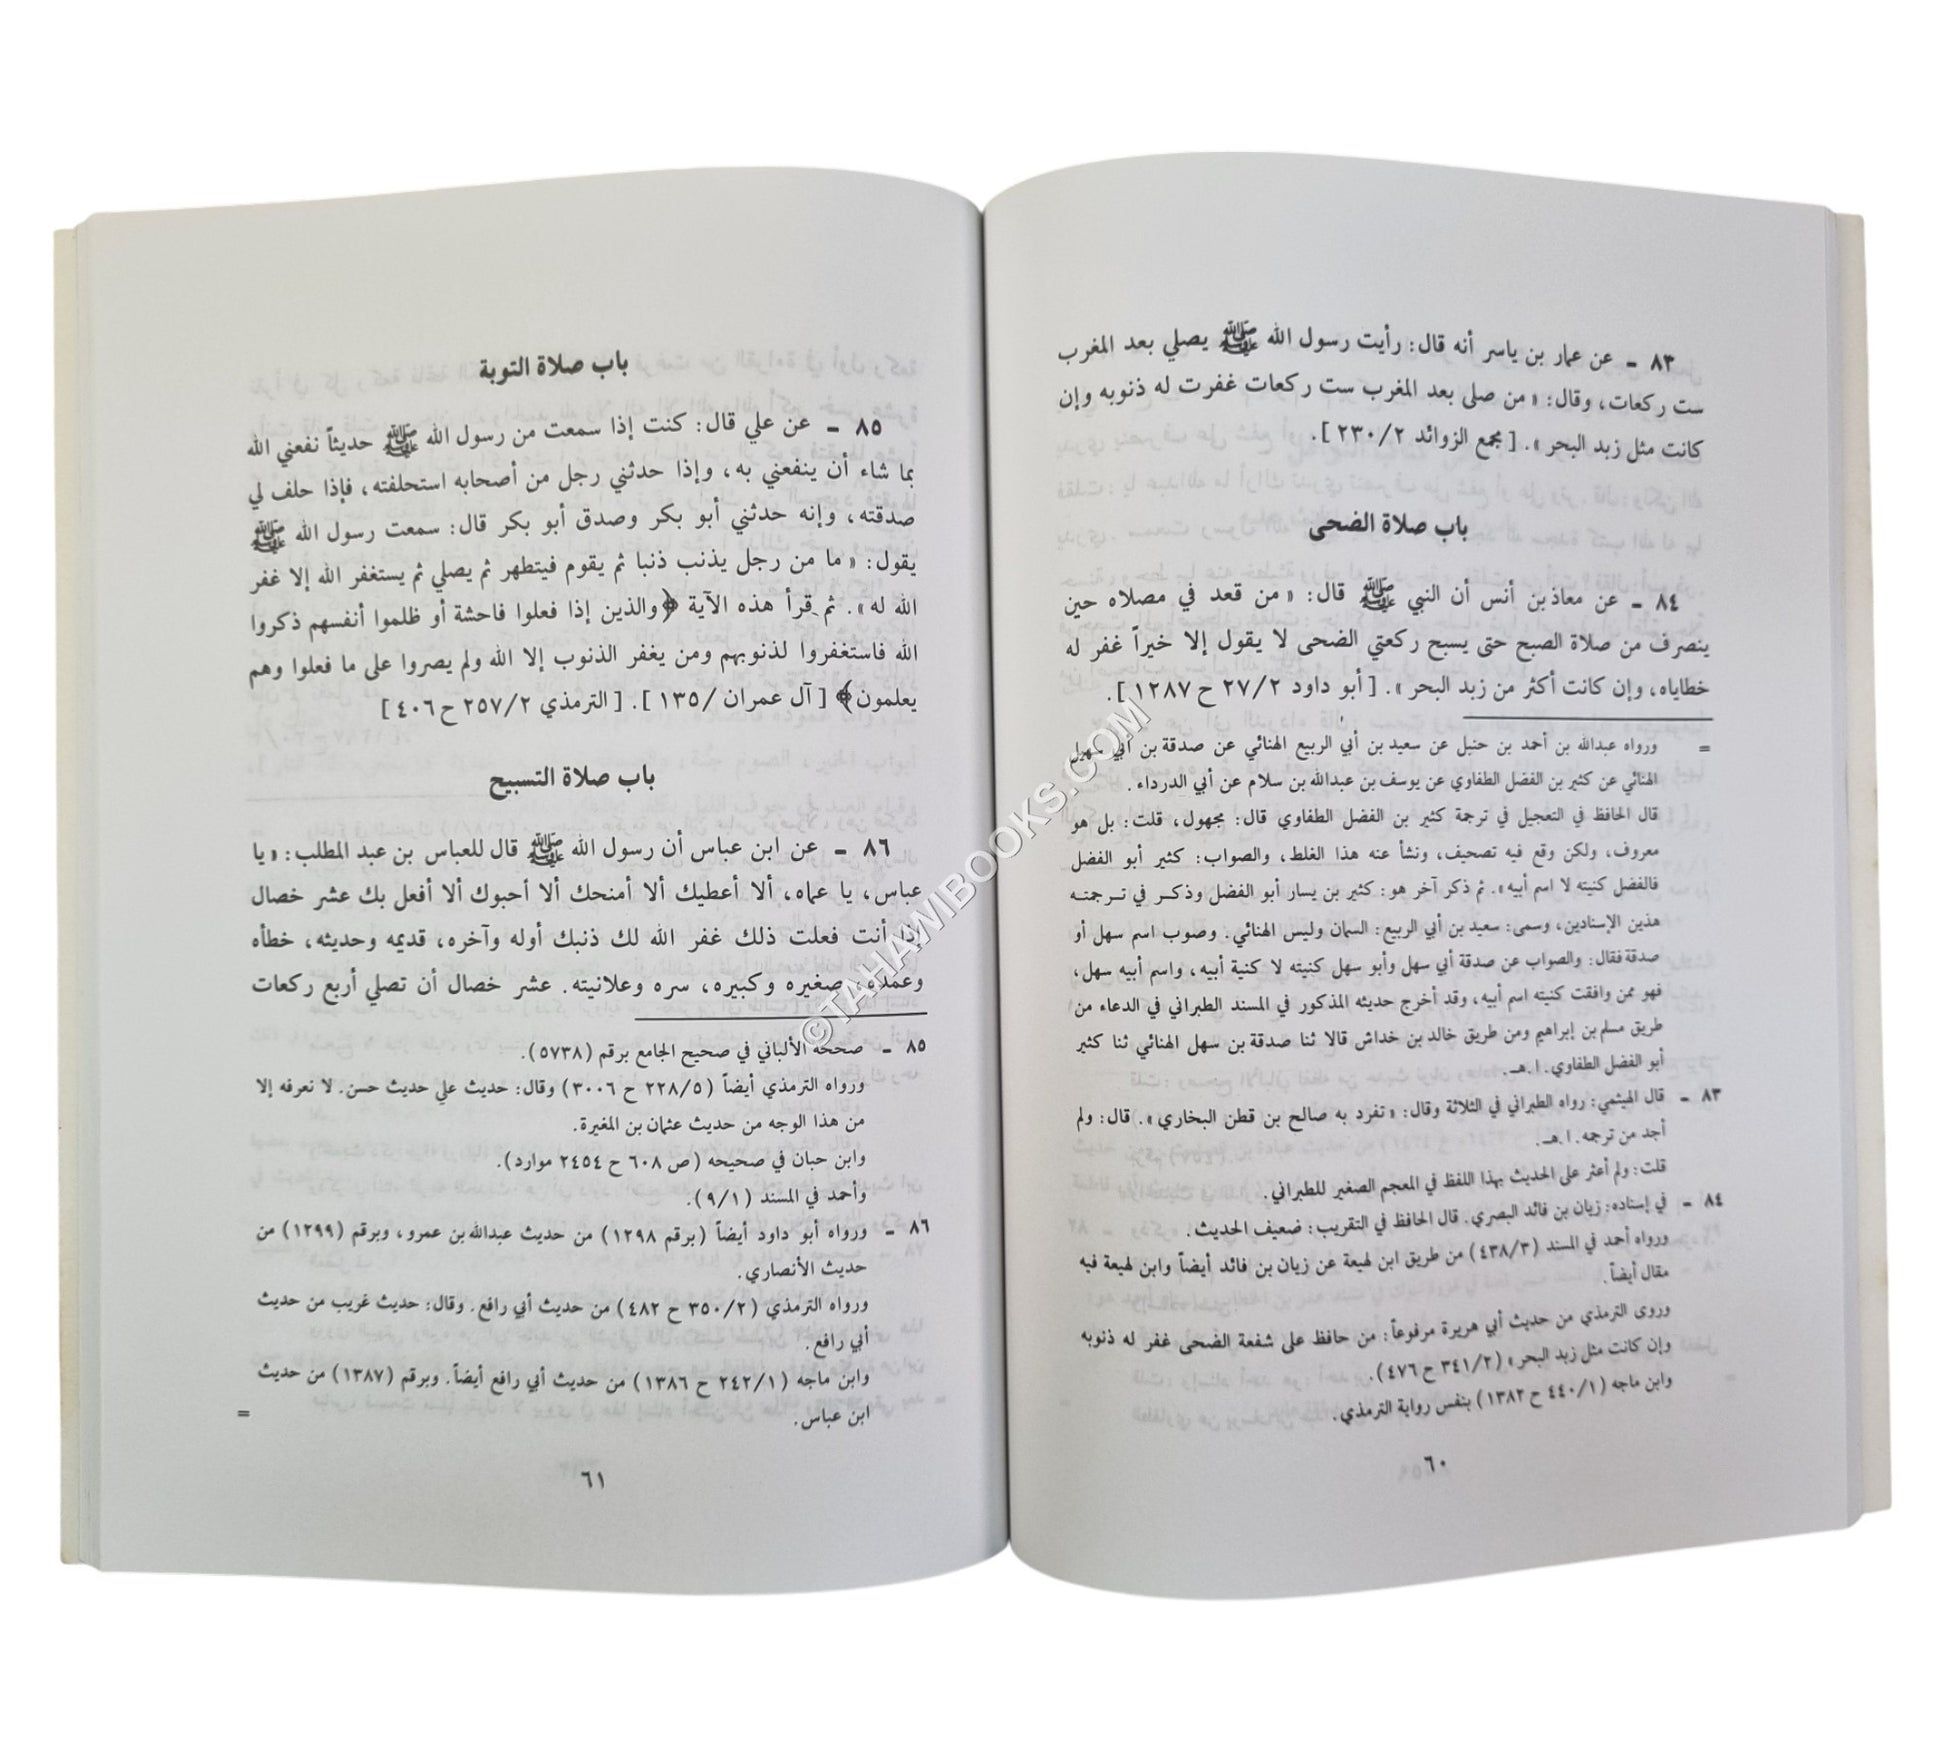 ٨٣ ـ عن عمار بن ياسر أنه قال: رأيت رسول الله ﷺ يصلي بعد المغرب
ست ركعات، وقال: «من صلى بعد المغرب ست ركعات غفرت له ذنوبه وإن
كانت مثل زبد البحر». [مجمع الزوائد ٢/ ٢٣٠].
باب صلاة الضحى
٨٤ ـ عن معاذ بن أنس أن النبي ﷺ قال: «من قعد في مصلاه حين
ينصرف من صلاة الصبح حتى يسبح ركعتي الضحى لا يقول إلا خيراً غفر له
خطاياه، وإن كانت أكثر من زبد البحر». [أبو داود ٢/ ٢٧ ح ١٢٨٧].
= ورواه عبدالله بن أحمد بن حنبل عن سعيد بن أبي الربيع الهنائي عن صدقة بن أبي سهل
الهنائي عن كثير بن الفضل الطفاوي عن يوسف بن عبدالله بن سلام عن أبي الدرداء.
قال الحافظ في التعجيل في ترجمة كثير بن الفضل الطفاوي قال: مجهول، قلت: بل هو
معروف، ولكن وقع فيه تصحيف، ونشأ عنه هذا الغلط، والصواب: كثير أبو الفضل
فالفضل كنيته لا اسم أبيه». ثم ذكر آخر هو: كثير بن يسار أبو الفضل وذكر في ترجمته
هذين الإسنادين، وسمى: سعيد بن أبي الربيع: السمان وليس الهنائي. وصوب اسم سهل أو
صدقة فقال: والصواب عن صدقة أبي سهل وأبو سهل كنيته لا كنية أبيه، واسم أبيه سهل،
فهو ممن وافقت كنيته اسم أبيه، وقد أخرج حديثه المذكور في المسند الطبراني في الدعاء من
طريق مسلم بن إبراهيم ومن طريق خالد بن خداش قالا ثنا صدقة بن سهل الهنائي ثنا كثير
أبو الفضل الطفاوي. ا.هـ.
٨٣ ـ قال الهيثمي: رواه الطبراني في الثلاثة وقال: «تفرد به صالح بن قطن البخاري». قال: ولم
أجد من ترجمه. ا.هـ.
قلت: ولم أعثر على الحديث بهذا اللفظ في المعجم الصغير للطبراني.
٨٤ ـ في إسناده: زبان بن فائد البصري. قال الحافظ في التقريب: ضعيف الحديث.
ورواه أحمد في المسند (٣/ ٤٣٨) من طريق ابن لهيعة عن زبان بن فائد أيضاً وابن لهيعة فيه
مقال أيضاً.
وروى الترمذي من حديث أبي هريرة مرفوعاً: من حافظ على شفعة الضحى غفر له ذنوبه
وإن كانت مثل زبد البحر» (٢/ ٣٤١ ح ٤٧٦).
وابن ماجه (١/ ٤٤٠ ح ١٣٨٢) بنفس رواية الترمذي.
٦٠
باب صلاة التوبة
٨٥ ـ عن علي قال: كنت إذا سمعت من رسول الله ﷺ حديثاً نفعني الله
بما شاء أن ينفعني به، وإذا حدثني رجل من أصحابه استحلفته، فإذا حلف لي
صدقته، وإنه حدثني أبو بكر وصدق أبو بكر قال: سمعت رسول الله ﷺ
يقول: «ما من رجل يذنب ذنبا ثم يقوم فيتطهر ثم يصلي ثم يستغفر الله إلا غفر
الله له». ثم قرأ هذه الآية ﴿والذين إذا فعلوا فاحشة أو ظلموا أنفسهم ذكروا
الله فاستغفروا لذنوبهم ومن يغفر الذنوب إلا الله ولم يصروا على ما فعلوا وهم
يعلمون﴾ [آل عمران / ١٣٥]. [الترمذي ٢/ ٢٥٧ ح ٤٠٦]
باب صلاة التسبيح
٨٦ ـ عن ابن عباس أن رسول الله ﷺ قال للعباس بن عبد المطلب: «يا
عباس، يا عماه، ألا أعطيك ألا أمنحك ألا أحبوك ألا أفعل بك عشر خصال
إذا أنت فعلت ذلك غفر الله لك ذنبك أوله وآخره، قديمه وحديثه، خطأه
وعمده، صغيره وكبيره، سره وعلانيته. عشر خصال أن تصلي أربع ركعات
٨٥ ـ صححه الألباني في صحيح الجامع برقم (٥٧٣٨).
ورواه الترمذي أيضاً (٥/ ٢٢٨ ح ٣٠٠٦) وقال: حديث علي حديث حسن. لا نعرفه إلا
من هذا الوجه من حديث عثمان بن المغيرة.
وابن حبان في صحيحه (ص ٦٠٨ ح ٢٤٥٤ موارد).
وأحمد في المسند (١/ ٩).
٨٦ ـ ورواه أبو داود أيضاً (برقم ١٢٩٨) من حديث عبدالله بن عمرو، وبرقم (١٢٩٩) من
حديث الأنصاري.
ورواه الترمذي (٢/ ٣٥٠ ح ٤٨٢) من حديث أبي رافع. وقال: حديث غريب من حديث
أبي رافع.
وابن ماجه (١/ ٢٤٢ ح ١٣٨٦) من حديث أبي رافع أيضاً. وبرقم (١٣٨٧) من حديث
ابن عباس. =
٦١
©TAHAWIBOOKS.COM